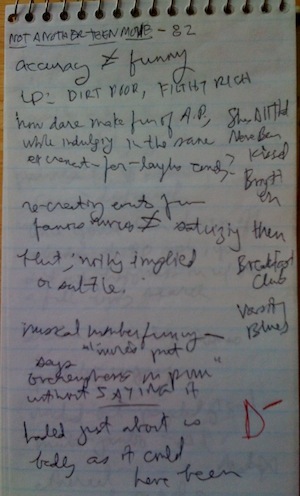 NOT ANOTHER TEEN MOVIE - 82
accuracy ≠ funny
LP: DIRT POOR, FILTHY RICH
how dare make fun of A.P.,
while indulging in the same
excrement-for-laughs comedy?
She's All That
Never Been
Kissed
Bring It
On
Breakfast
Club
Varsity
Blues
re-creating events from
famous sources ≠ satirizing them
that; nothing implied
or subtle.
musical number funny -
says
in prom"
without SAYING it
D-
hated just about as
badly as it could
have been